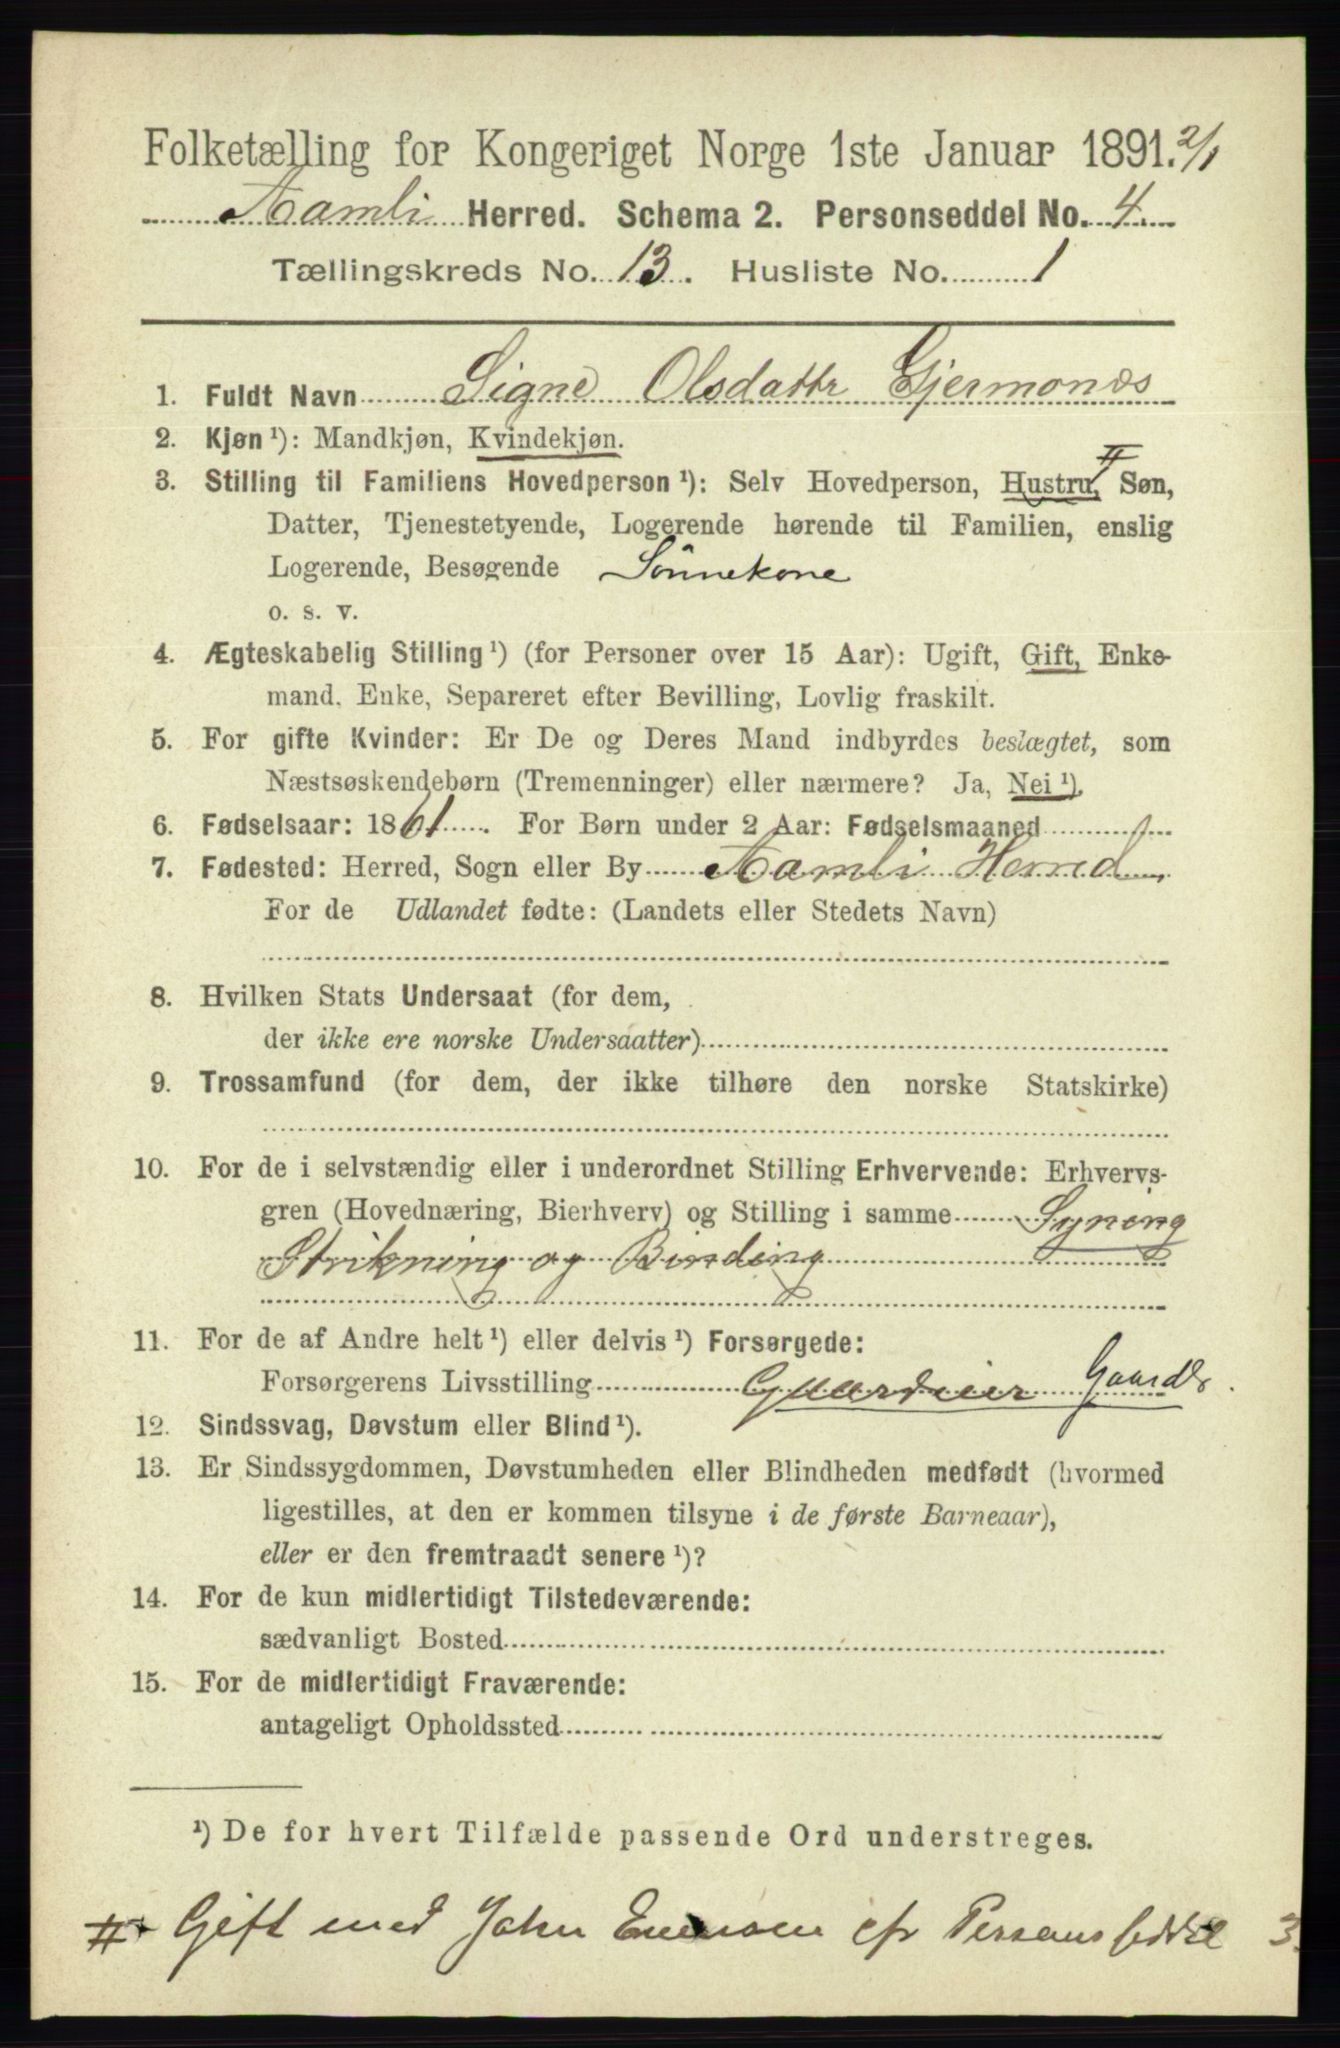 Folketælling for Kongeriget Norge 1ste Januar 1891. 2/1
Aamli Herred. Schema 2. Personseddel No. 4
Tællingskreds No. 13. Husliste No. 1
1. Fuldt Navn Signe Olsdattr Gjermonds
2. Kjøn ¹): Mandkjøn, Kvindekjøn.
3. Stilling til Familiens Hovedperson ¹): Selv Hovedperson, Hustru, # Søn,
Datter, Tjenestetyende, Logerende hørende til Familien, enslig
Logerende, Besøgende Sönnekone
o. s. v.
4. Ægteskabelig Stilling ¹) (for Personer over 15 Aar): Ugift, Gift, Enke-
mand, Enke, Separeret efter Bevilling, Lovlig fraskilt.
5. For gifte Kvinder: Er De og Deres Mand indbyrdes beslægtet, som
Næstsøskendebørn (Tremenninger) eller nærmere? Ja, Nei ¹).
6. Fødselsaar: 1861. For Børn under 2 Aar: Fødselsmaaned
7. Fødested: Herred, Sogn eller By Aamli Herred
For de Udlandet fødte: (Landets eller Stedets Navn)
8. Hvilken Stats Undersaat (for dem,
der ikke ere norske Undersaatter)
9. Trossamfund (for dem, der ikke tilhøre den norske Statskirke)
10. For de i selvstændig eller i underordnet Stilling Erhvervende: Erhvervs-
gren (Hovednæring, Bierhverv) og Stilling i samme Syning
Strikning og Binding
11. For de af Andre helt ¹) eller delvis ¹) Forsørgede:
Forsørgerens Livsstilling Gaardeier Gaardbr.
12. Sindssvag, Døvstum eller Blind ¹).
13. Er Sindssygdommen, Døvstumheden eller Blindheden medfødt (hvormed
ligestilles, at den er kommen tilsyne i de første Barneaar),
eller er den fremtraadt senere ¹)?
14. For de kun midlertidigt Tilstedeværende:
sædvanligt Bosted
15. For de midlertidigt Fraværende:
antageligt Opholdssted
¹) De for hvert Tilfælde passende Ord understreges.
# Gift med John cfr Personseddel 3.